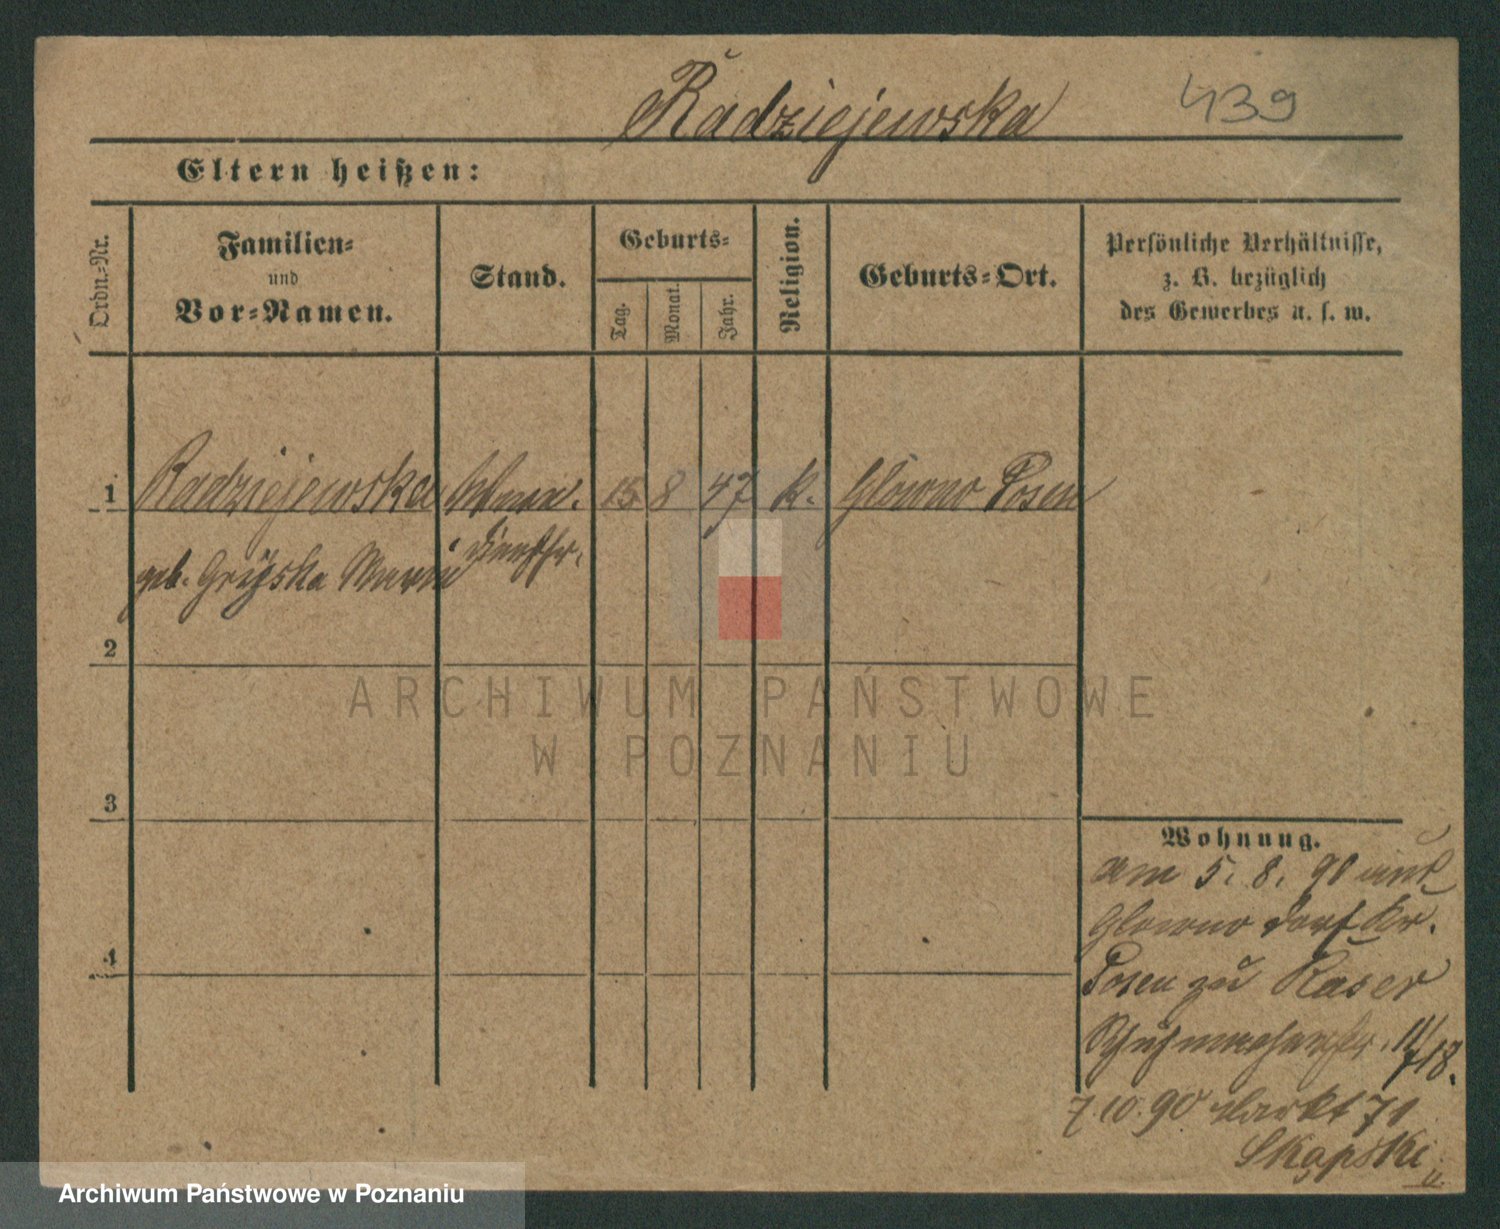 Radziejewska
439
Eltern heißen:
Ordn.-Nr.
Familien-
und
Vor-Namen.
Stand.
Geburts-
Tag.
Monat.
Jahr.
Religion.
Geburts-Ort.
Persönliche Verhältnisse,
z. B. bezüglich
des Gewerbes u. s. w.
1 Radziejewska 15 8 47 k. Glowno Posen
geb. Maria
2
3
4
ARCHIWUM PAŃSTWOWE
W POZNANIU
Wohnung.
Am 5. 8. 90 aus
Glowno Dorf Kr.
Posen zu Kaser
Schuhmacherstr. 11/
718.
7.10.90 Markt 71
Skąpski
Archiwum Państwowe w Poznaniu